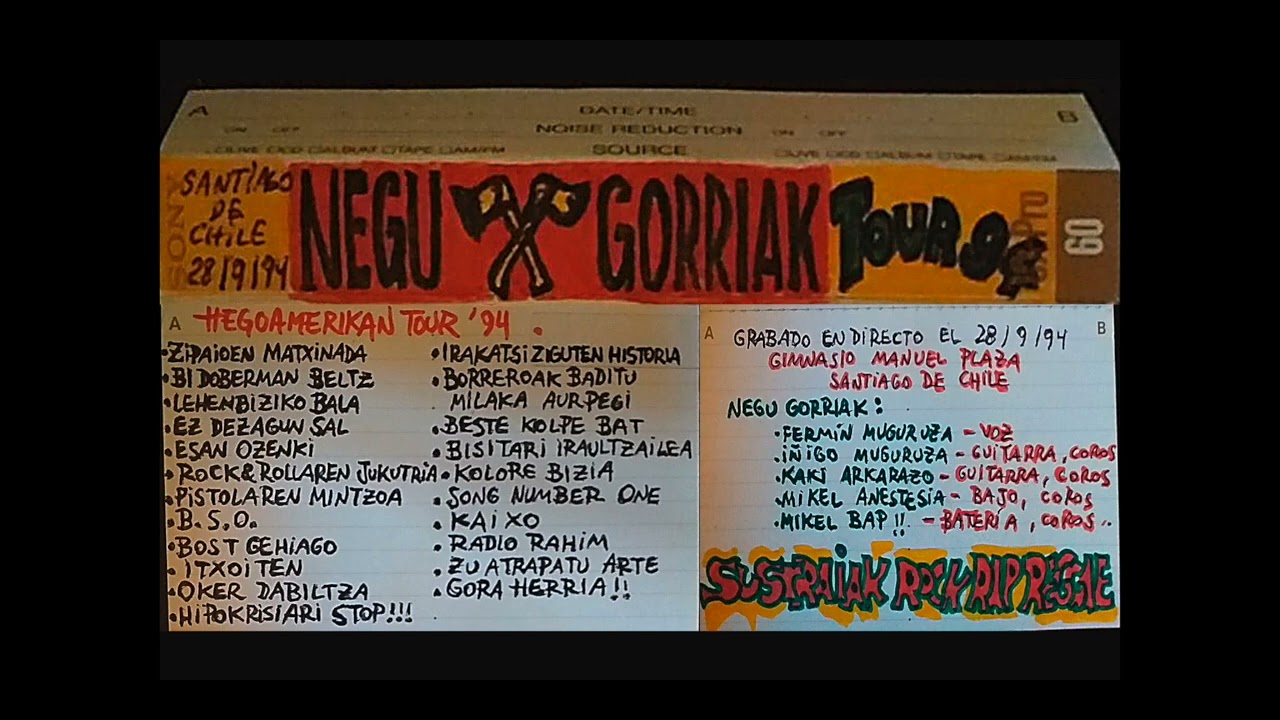 A
DATE/TIME
B
ON OFF
NOISE REDUCTION
ON OFF
LIVE CD ALBUM TAPE AM/FM
SOURCE
LIVE CD ALBUM TAPE AM/FM
SONY
SANTIAGO
DE
CHILE
28/9/94
NEGU GORRIAK
TOUR 94
60
A
HEGOAMERIKAN TOUR '94.
•ZIPAIOEN MATXINADA
•BI DOBERMAN BELTZ
•LEHENBIZIKO BALA
•EZ DEZAGUN SAL
•ESAN OZENKI
•ROCK&ROLLAREN JUKUTRIA
•PISTOLAREN MINTZOA
•B.S.O.
•BOST GEHIAGO
•ITXOITEN
•OKER DABILTZA
•HIPOKRISIARI STOP!!!
•IRAKATSI ZIGUTEN HISTORIA
•BORREROAK BADITU
MILAKA AURPEGI
•BESTE KOLPE BAT
•BISITARI IRAULTZAILEA
•KOLORE BIZIA
•SONG NUMBER ONE
•KAIXO
•RADIO RAHIM
•ZU ATRAPATU ARTE
•GORA HERRIA!!
A
B
GRABADO EN DIRECTO EL 28/9/94
GIMNASIO MANUEL PLAZA
SANTIAGO DE CHILE
NEGU GORRIAK:
•FERMÍN MUGURUZA - VOZ
•IÑIGO MUGURUZA - GUITARRA, COROS
•KAKI ARKARAZO - GUITARRA, COROS
•MIKEL ANESTESIA - BAJO, COROS
•MIKEL BAP!! - BATERIA, COROS..
SUSTRAIAK ROCK RAP REGGAE